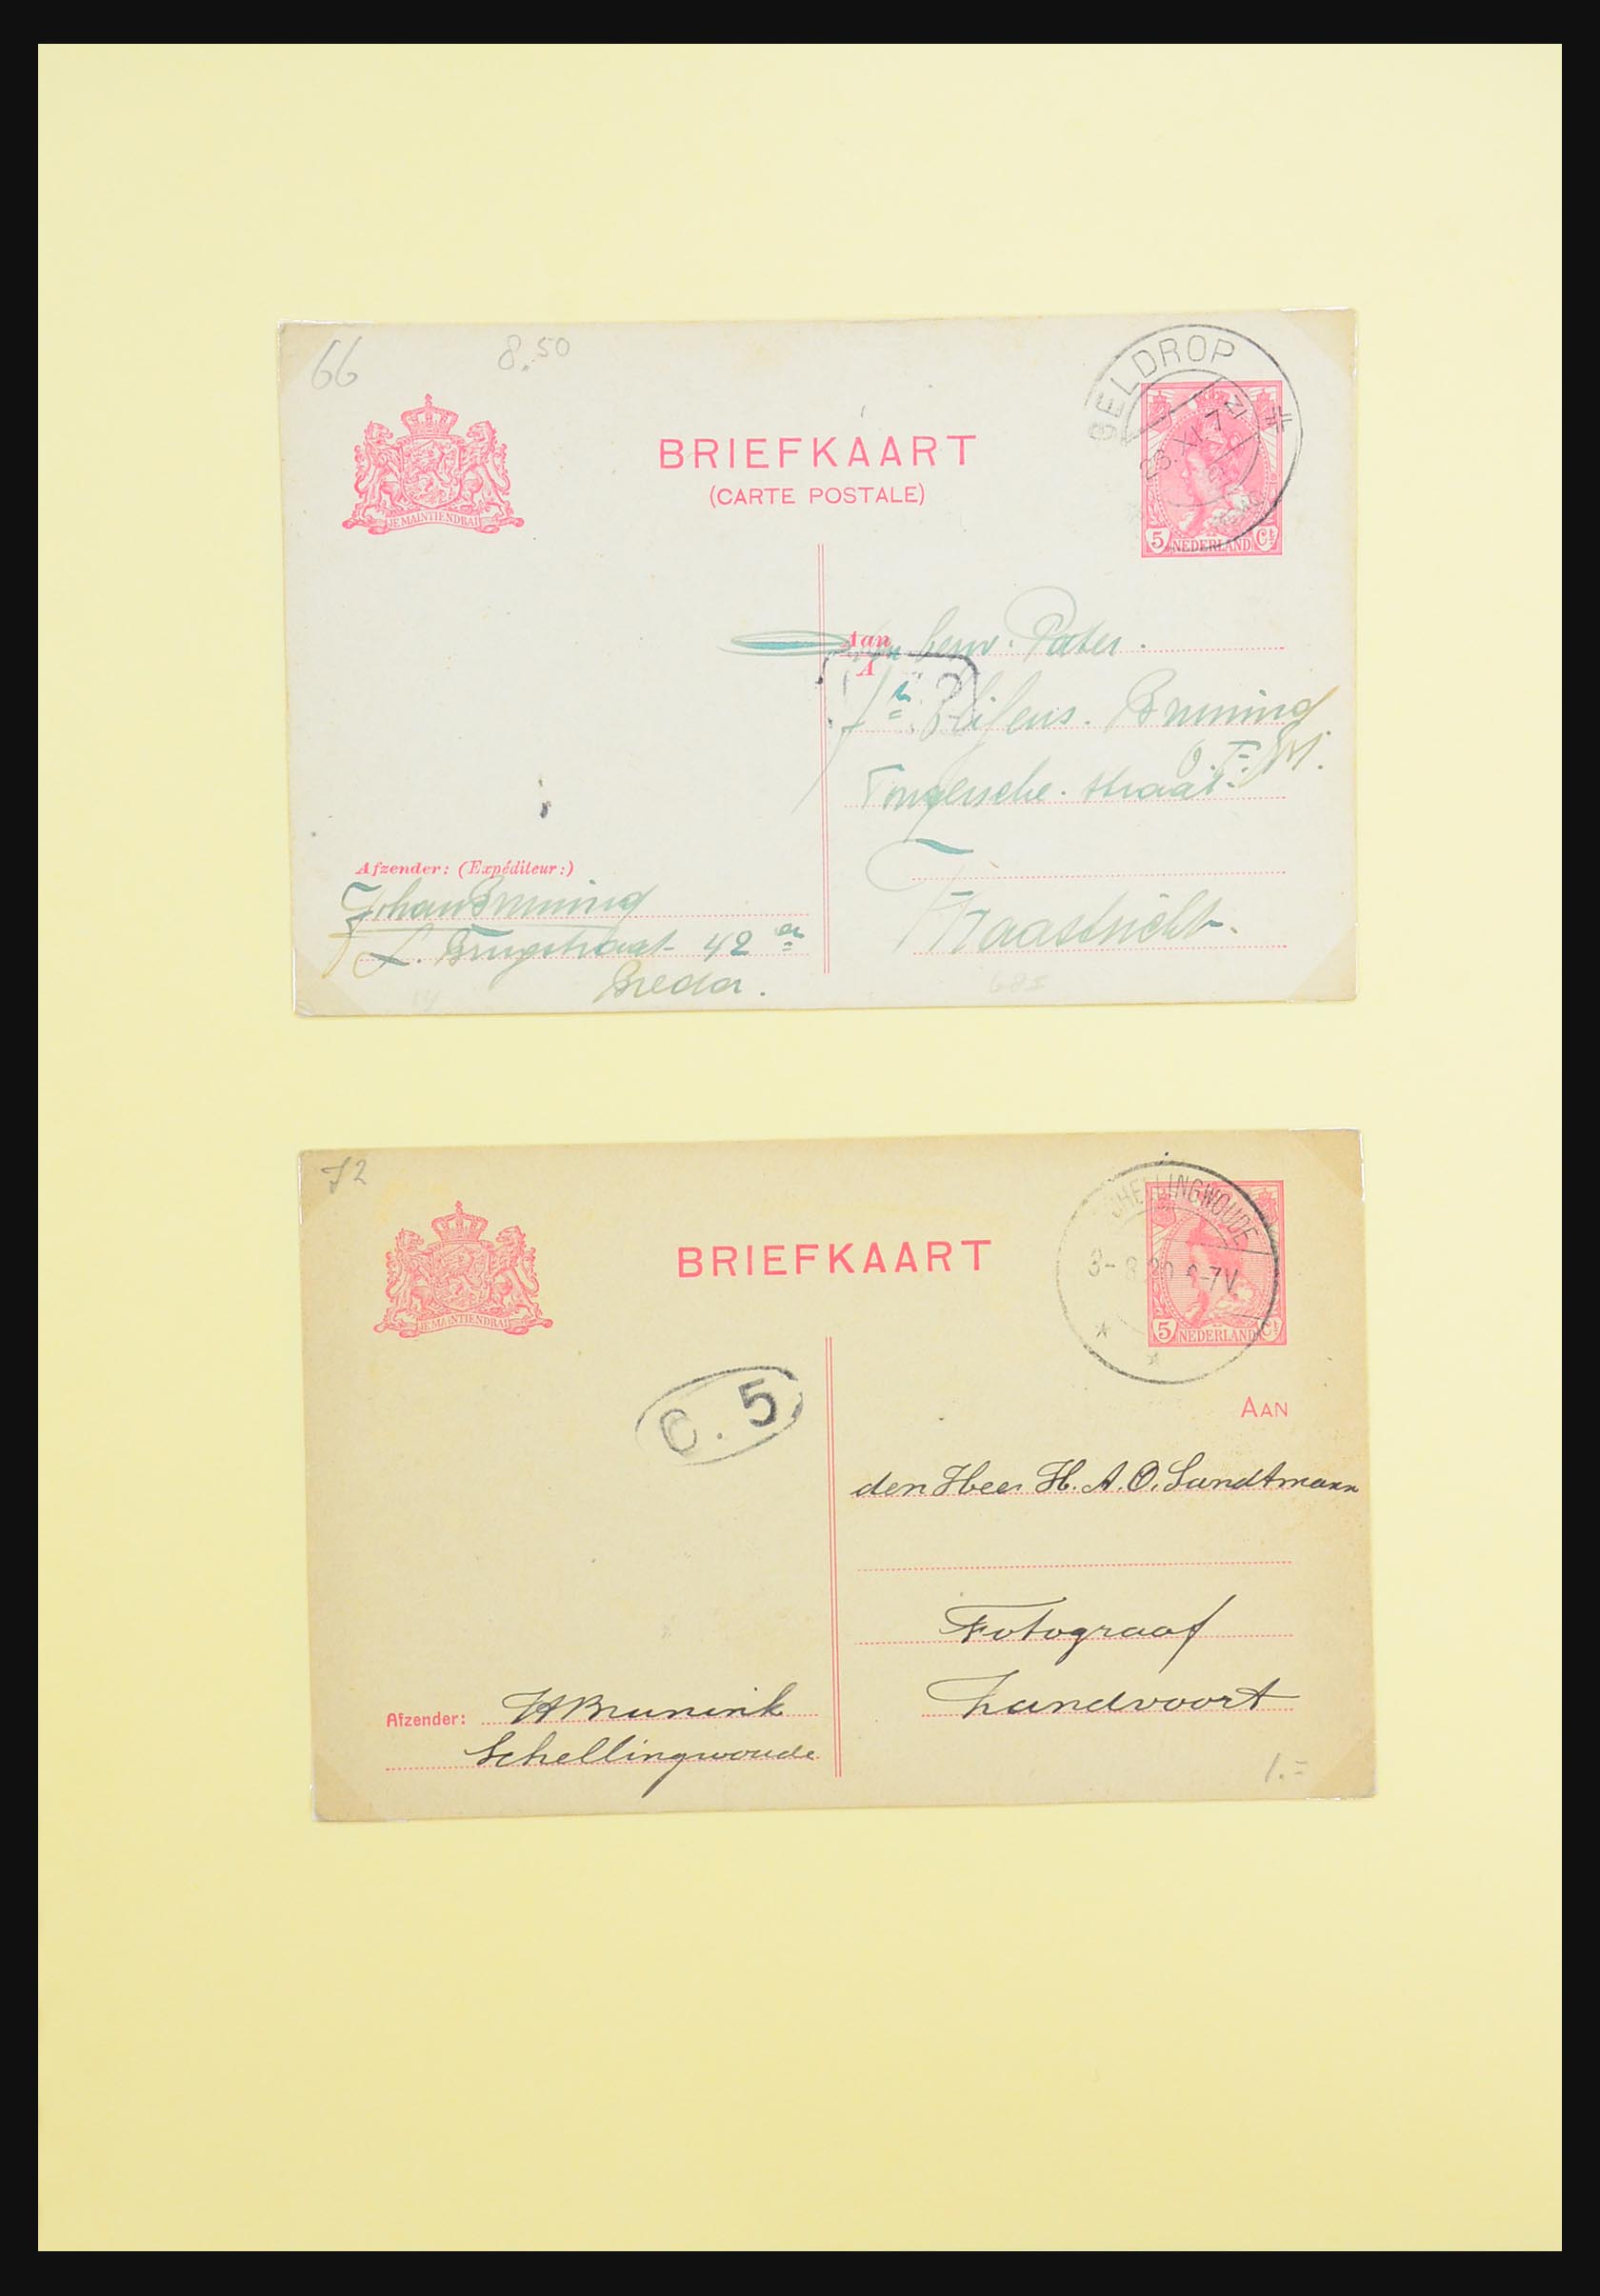 66
8.50
GELDROP
JE MAINTIENDRAI
BRIEFKAART
(CARTE POSTALE)
5 NEDERLAND Ct
Aan
A
Pater.
Bruning
O.F.M.
Tongersche. straat.
Maastricht.
Afzender: (Expéditeur:)
Johan Bruning
L. Brugstraat 42
Breda.
72
SCHELLINGWOUDE
JE MAINTIENDRAI
BRIEFKAART
5 NEDERLAND Ct
C. 5
AAN
den Heer H. A. O. Sandtmann
Fotograaf
Zandvoort
Afzender: H Brunink
Schellingwoude
1.=